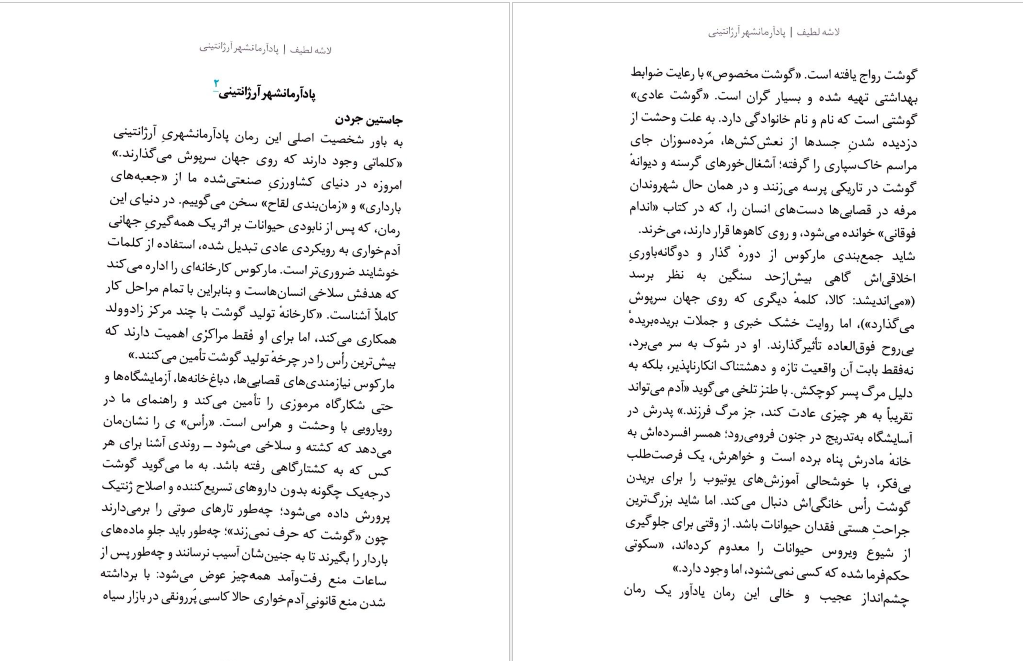 لاشه لطیف | پادآرمانشهر آرژانتینی
پادآرمانشهر آرژانتینی۲
جاستین جردن
به باور شخصیت اصلی این رمان پادآرمانشهریِ آرژانتینی
«کلماتی وجود دارند که روی جهان سرپوش می‌گذارند.»
امروزه در دنیای کشاورزیِ صنعتی‌شده ما از «جعبه‌های
بارداری» و «زمان‌بندی لقاح» سخن می‌گوییم. در دنیای این
رمان، که پس از نابودی حیوانات بر اثر یک همه‌گیریِ جهانی
آدم‌خواری به رویکردی عادی تبدیل شده، استفاده از کلمات
خوشایند ضروری‌تر است. مارکوس کارخانه‌ای را اداره می‌کند
که هدفش سلاخی انسان‌هاست و بنابراین با تمام مراحل کار
کاملاً آشناست. «کارخانهٔ تولید گوشت با چند مرکز زادوولد
همکاری می‌کند، اما برای او فقط مراکزی اهمیت دارند که
بیش‌ترین رأس را در چرخهٔ تولید گوشت تأمین می‌کنند.»
مارکوس نیازمندی‌های قصابی‌ها، دباغ‌خانه‌ها، آزمایشگاه‌ها و
حتی شکارگاه مرموزی را تأمین می‌کند و راهنمای ما در
رویارویی با وحشت و هراس است. «رأس» ی را نشان‌مان
می‌دهد که کشته و سلاخی می‌شود ــ روندی آشنا برای هر
کس که به کشتارگاهی رفته باشد. به ما می‌گوید گوشت
درجه‌یک چگونه بدون داروهای تسریع‌کننده و اصلاح ژنتیک
پرورش داده می‌شود؛ چه‌طور تارهای صوتی را برمی‌دارند
چون «گوشت که حرف نمی‌زند»؛ چه‌طور باید جلوِ ماده‌های
باردار را بگیرند تا به جنین‌شان آسیب نرسانند و چه‌طور پس از
ساعات منع رفت‌وآمد همه‌چیز عوض می‌شود: با برداشته
شدن منع قانونیِ آدم‌خواری حالا کاسبی پُررونقی در بازار سیاه
لاشه لطیف | پادآرمانشهر آرژانتینی
گوشت رواج یافته است. «گوشت مخصوص» با رعایت ضوابط
بهداشتی تهیه شده و بسیار گران است. «گوشت عادی»
گوشتی است که نام و نام خانوادگی دارد. به علت وحشت از
دزدیده شدنِ جسدها از نعش‌کش‌ها، مُرده‌سوزان جای
مراسم خاک‌سپاری را گرفته؛ آشغال‌خورهای گرسنه و دیوانهٔ
گوشت در تاریکی پرسه می‌زنند و در همان حال شهروندان
مرفه در قصابی‌ها دست‌های انسان را، که در کتاب «اندام
فوقانی» خوانده می‌شود، و روی کاهوها قرار دارند، می‌خرند.
شاید جمع‌بندی مارکوس از دورهٔ گذار و دوگانه‌باوریِ
اخلاقی‌اش گاهی بیش‌ازحد سنگین به نظر برسد
(«می‌اندیشد: کالا، کلمهٔ دیگری که روی جهان سرپوش
می‌گذارد»)، اما روایت خشک خبری و جملات بریده‌بریدهٔ
بی‌روح فوق‌العاده تأثیرگذارند. او در شوک به سر می‌برد،
نه‌فقط بابت آن واقعیت تازه و دهشتناک انکارناپذیر، بلکه به
دلیل مرگ پسر کوچکش. با طنز تلخی می‌گوید «آدم می‌تواند
تقریباً به هر چیزی عادت کند، جز مرگ فرزند.» پدرش در
آسایشگاه به‌تدریج در جنون فرومی‌رود؛ همسر افسرده‌اش به
خانهٔ مادرش پناه برده است و خواهرش، یک فرصت‌طلب
بی‌فکر، با خوشحالی آموزش‌های یوتیوب را برای بریدن
گوشت رأس خانگی‌اش دنبال می‌کند. اما شاید بزرگ‌ترین
جراحتِ هستی فقدان حیوانات باشد. از وقتی برای جلوگیری
از شیوع ویروس حیوانات را معدوم کرده‌اند، «سکوتی
حکم‌فرما شده که کسی نمی‌شنود، اما وجود دارد.»
چشم‌انداز عجیب و خالی این رمان یادآور یک رمان